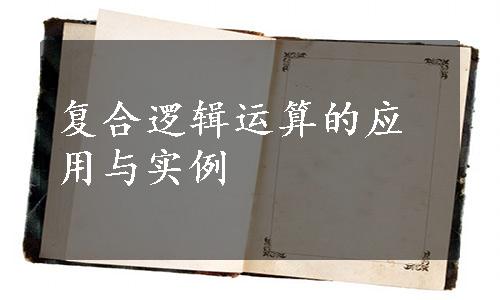 复合逻辑运算的应
用与实例